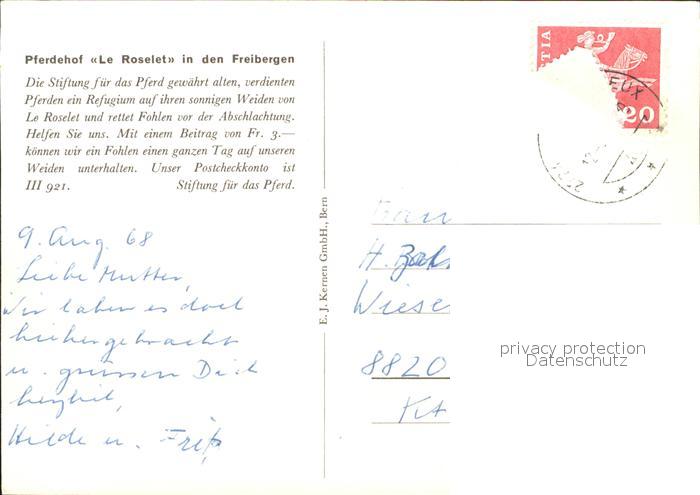 Pferdehof «Le Roselet» in den Freibergen
Die Stiftung für das Pferd gewährt alten, verdienten
Pferden ein Refugium auf ihren sonnigen Weiden von
Le Roselet und rettet Fohlen vor der Abschlachtung.
Helfen Sie uns. Mit einem Beitrag von Fr. 3.—
können wir ein Fohlen einen ganzen Tag auf unseren
Weiden unterhalten. Unser Postcheckkonto ist
III 921. Stiftung für das Pferd.
9. Aug. 68
Liebe Mutter,
Wir haben es doch
hierher gebracht
u. grüssen Dich
herzlich,
Hilde u. Fritz
E. J. Kernen GmbH., Bern
TIA
20
EUX
Frau
H.
Wiese
8820
privacy protection
Datenschutz